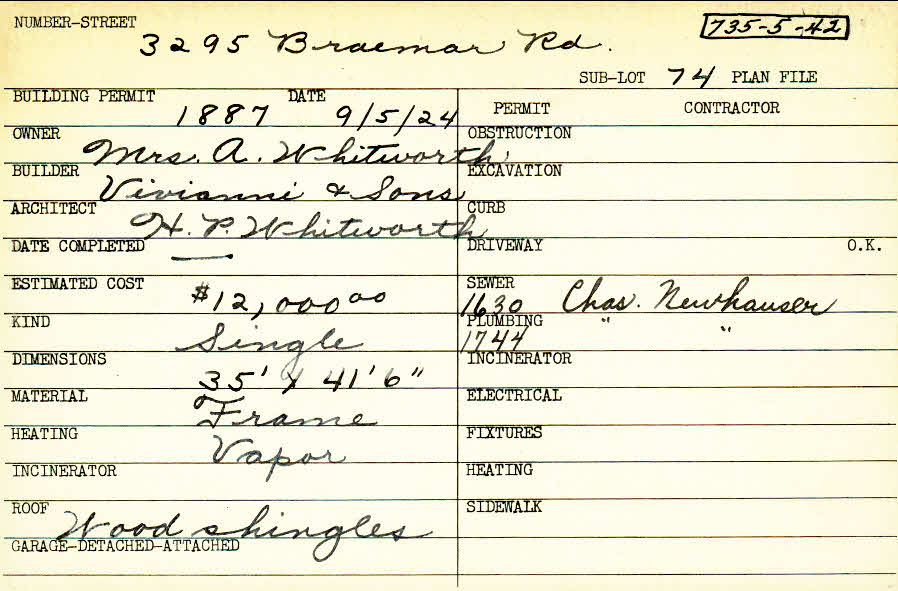 NUMBER-STREET
3295 Braemar Rd.
735-5-42
SUB-LOT 74 PLAN FILE
BUILDING PERMIT 1887 DATE 9/5/24
PERMIT CONTRACTOR
OWNER Mrs. A. Whitworth
OBSTRUCTION
BUILDER Vivianni & Sons
EXCAVATION
ARCHITECT H. P. Whitworth
CURB
DATE COMPLETED —
DRIVEWAY O.K.
ESTIMATED COST $12,000.00
SEWER 1630 Chas. Newhauser
KIND Single
PLUMBING 1744 " "
DIMENSIONS 35' x 41'6"
INCINERATOR
MATERIAL Frame
ELECTRICAL
HEATING Vapor
FIXTURES
INCINERATOR
HEATING
ROOF Wood shingles
SIDEWALK
GARAGE-DETACHED-ATTACHED